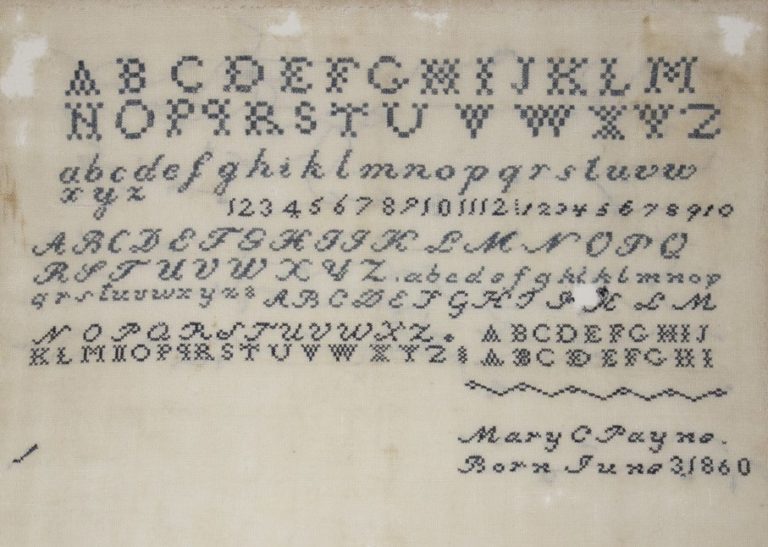 A B C D E F G H I J K L M
N O P Q R S T U V W X Y Z
a b c d e f g h i k l m n o p q r s t u v w
x y z
1 2 3 4 5 6 7 8 9 10 11 12 1 2 3 4 5 6 7 8 9 10
A B C D E F G H I J K L M N O P Q
R S T U V W X Y Z . a b c d e f g h i k l m n o p
q r s t u v w x y z A B C D E F G H I J K L M
N O P Q R S T U V W X Z . A B C D E F G H I J
K L M N O P Q R S T U V W X Y Z A B C D E F G H I
Mary C Payne.
Born June 3 1860